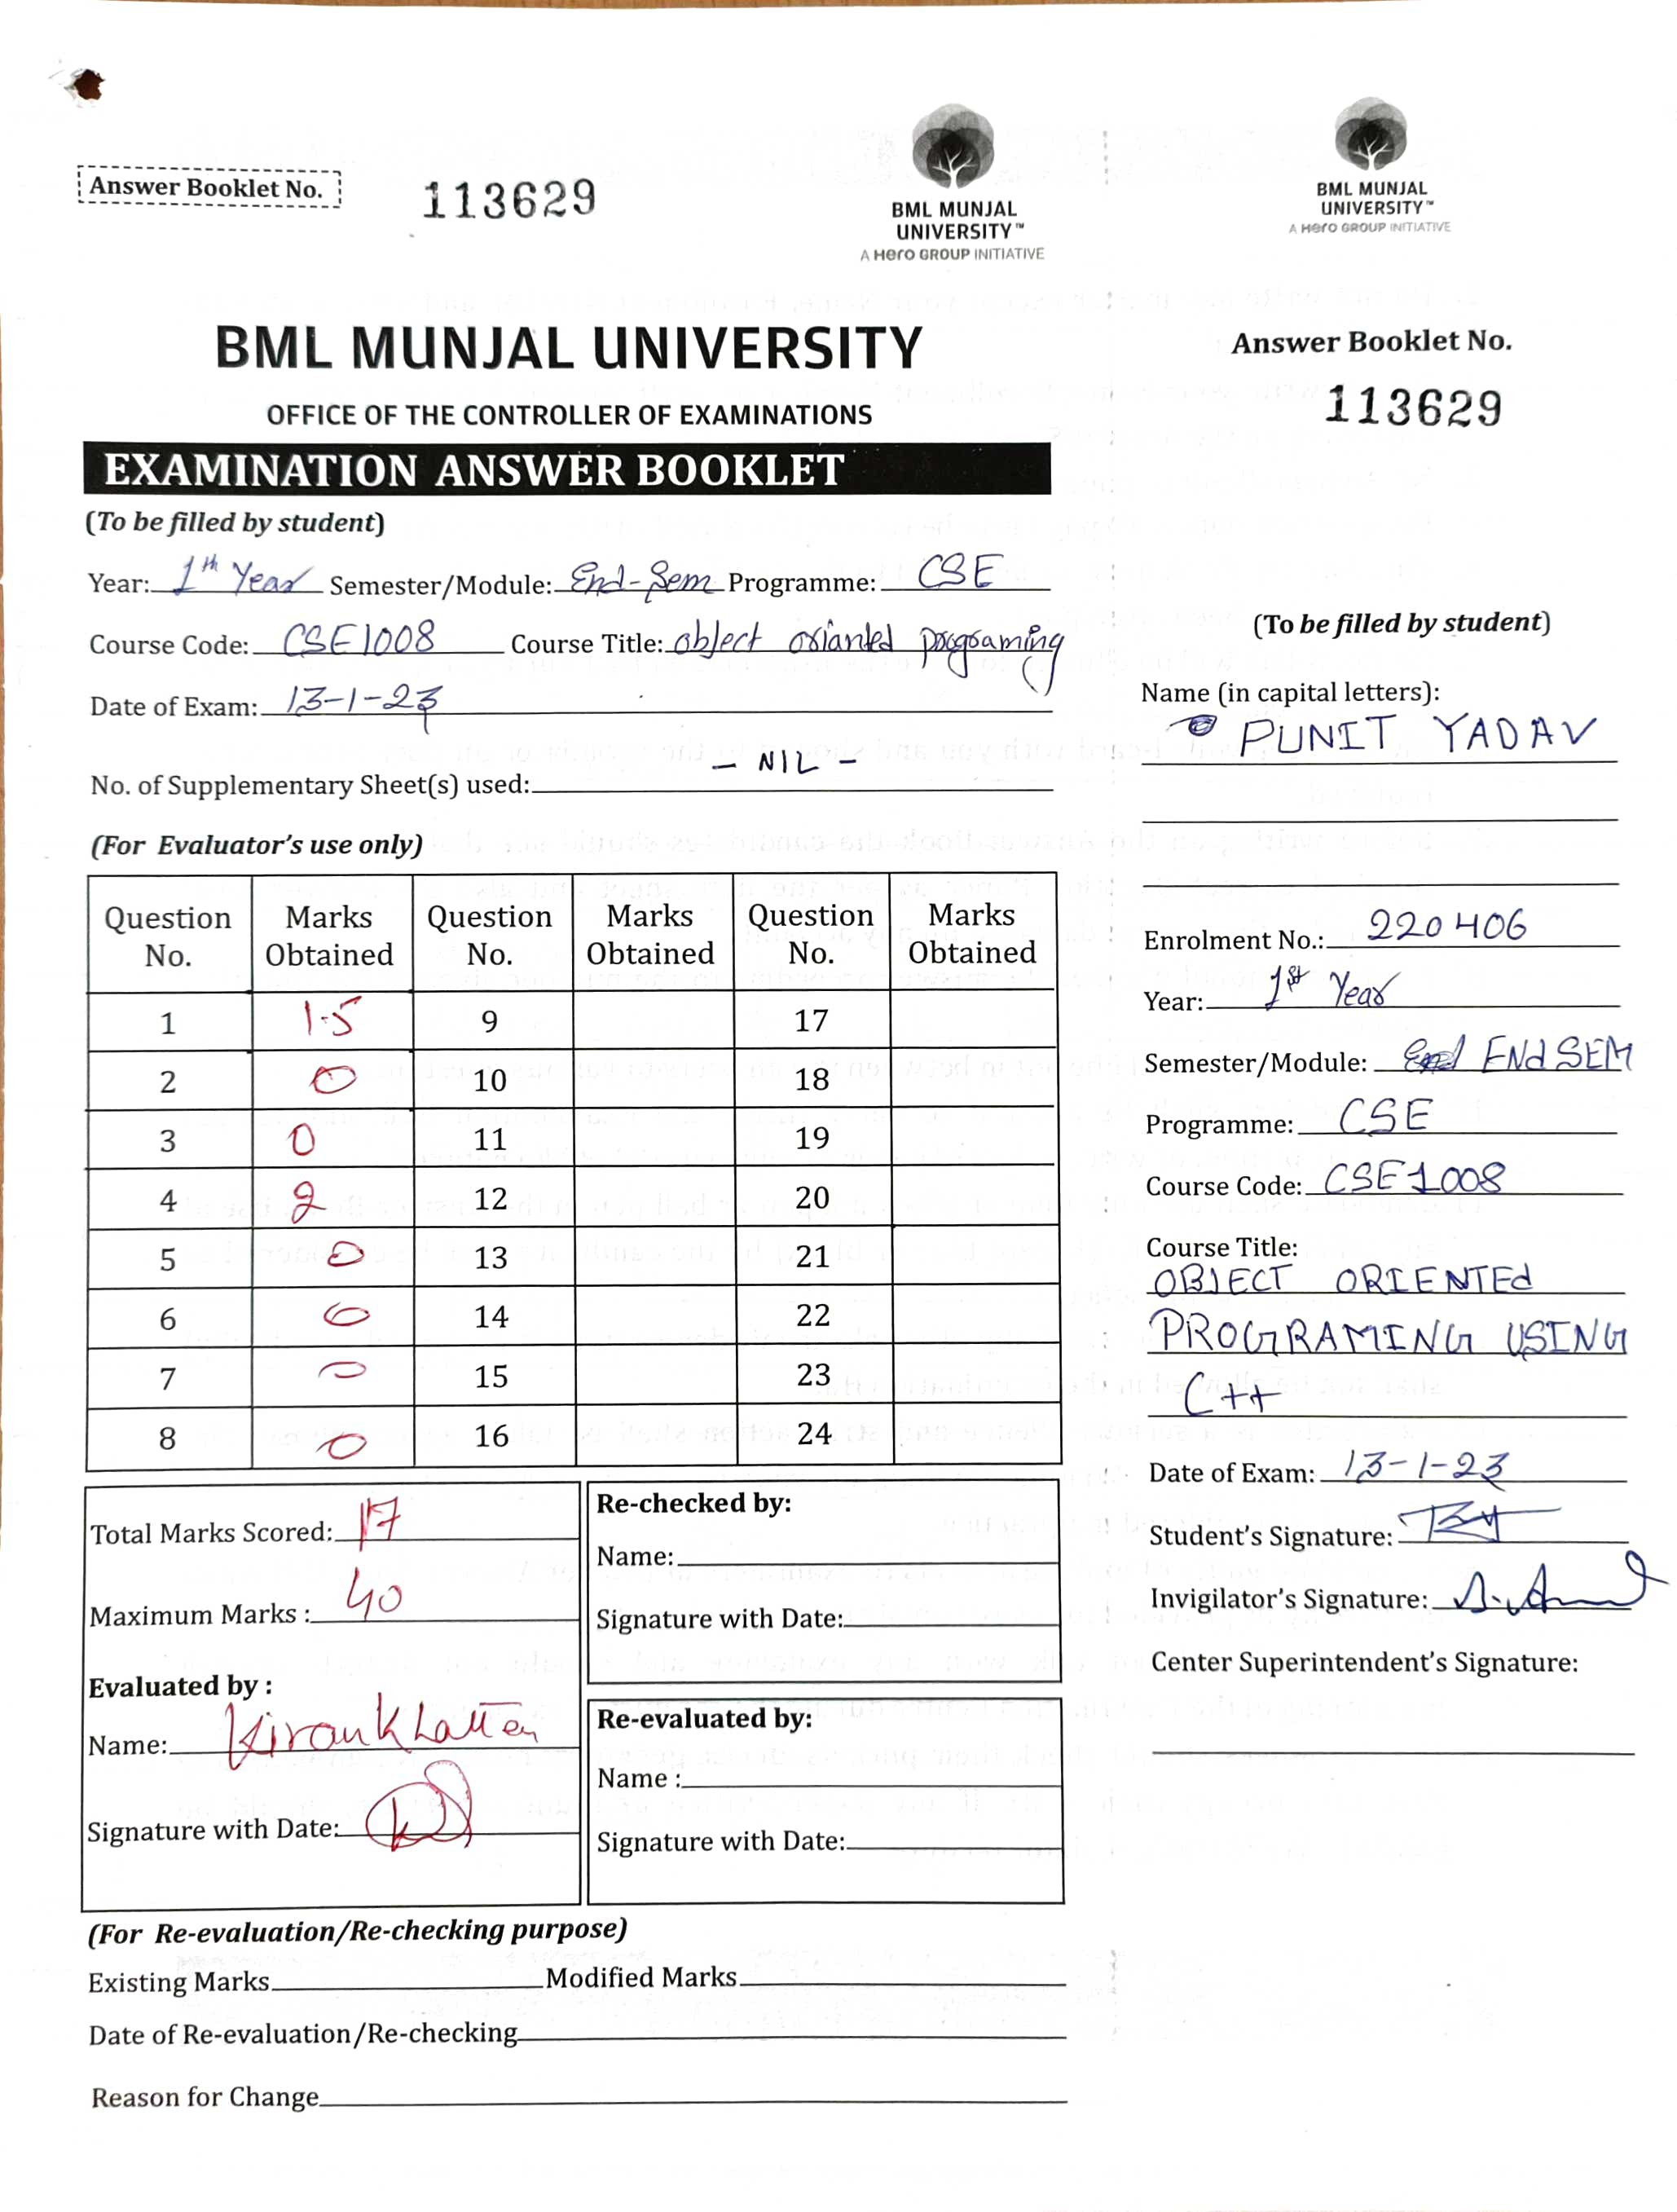 Answer Booklet No.
113629
BML MUNJAL
UNIVERSITY™
A Hero GROUP INITIATIVE
BML MUNJAL
UNIVERSITY™
A Hero GROUP INITIATIVE
BML MUNJAL UNIVERSITY
OFFICE OF THE CONTROLLER OF EXAMINATIONS
EXAMINATION ANSWER BOOKLET
(To be filled by student)
Year: 1th Year Semester/Module: End-Sem Programme: CSE
Course Code: CSE1008 Course Title: object orianted programing
Date of Exam: 13-1-23
No. of Supplementary Sheet(s) used: - NIL -
(For Evaluator's use only)
Question No. Marks Obtained Question No. Marks Obtained Question No. Marks Obtained
1 1.5 9 17
2 0 10 18
3 0 11 19
4 2 12 20
5 0 13 21
6 0 14 22
7 0 15 23
8 0 16 24
Total Marks Scored: 17
Maximum Marks : 40
Evaluated by :
Name: Kiran Khatter
Signature with Date:
Re-checked by:
Name:
Signature with Date:
Re-evaluated by:
Name :
Signature with Date:
(For Re-evaluation/Re-checking purpose)
Existing Marks Modified Marks
Date of Re-evaluation/Re-checking
Reason for Change
Answer Booklet No.
113629
(To be filled by student)
Name (in capital letters):
PUNIT YADAV
Enrolment No.: 220406
Year: 1st Year
Semester/Module: ENd SEM
Programme: CSE
Course Code: CSE1008
Course Title:
OBJECT ORIENTEd
PROGRAMING USING
C++
Date of Exam: 13-1-23
Student's Signature:
Invigilator's Signature:
Center Superintendent's Signature: